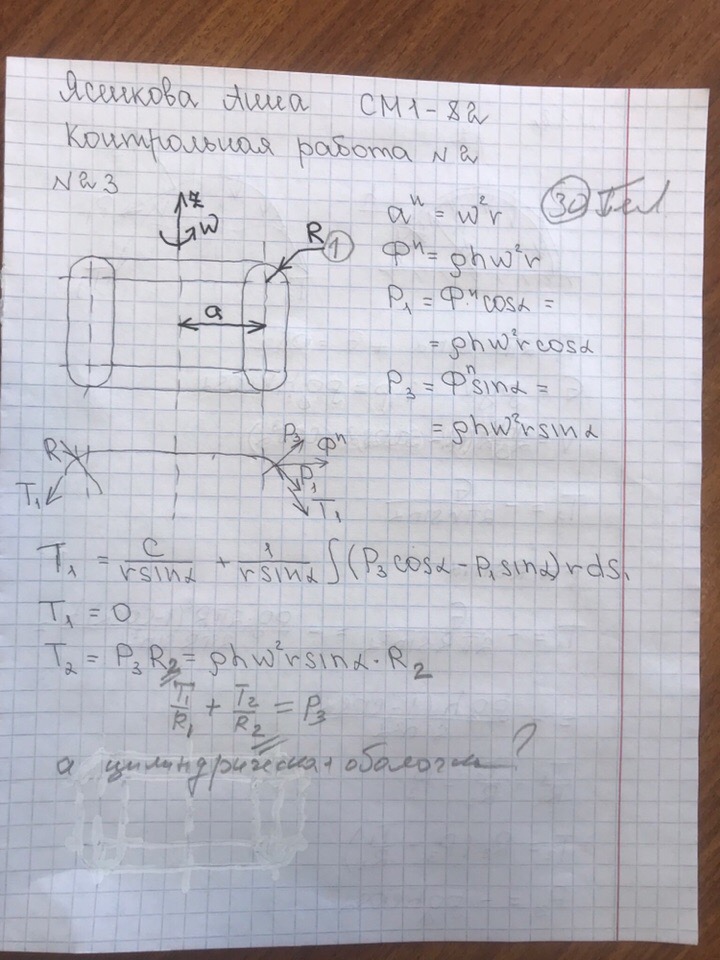 Ясникова Анна СМ1-82
Контрольная работа №2
№23
30
z
ω
R
1
a
aⁿ = ω²r
Φⁿ = ρhω²r
P₁ = Φⁿcosα =
= ρhω²rcosα
P₃ = Φⁿsinα =
= ρhω²rsinα
R
T₁
P₃
Φⁿ
P₁
T₁
T₁ = C/(rsinα) + 1/(rsinα) ∫(P₃cosα - P₁sinα)rds₁
T₁ = 0
T₂ = P₃R₂ = ρhω²rsinα·R₂
T₁/R₁ + T₂/R₂ = P₃
а цилиндрическая оболочка?